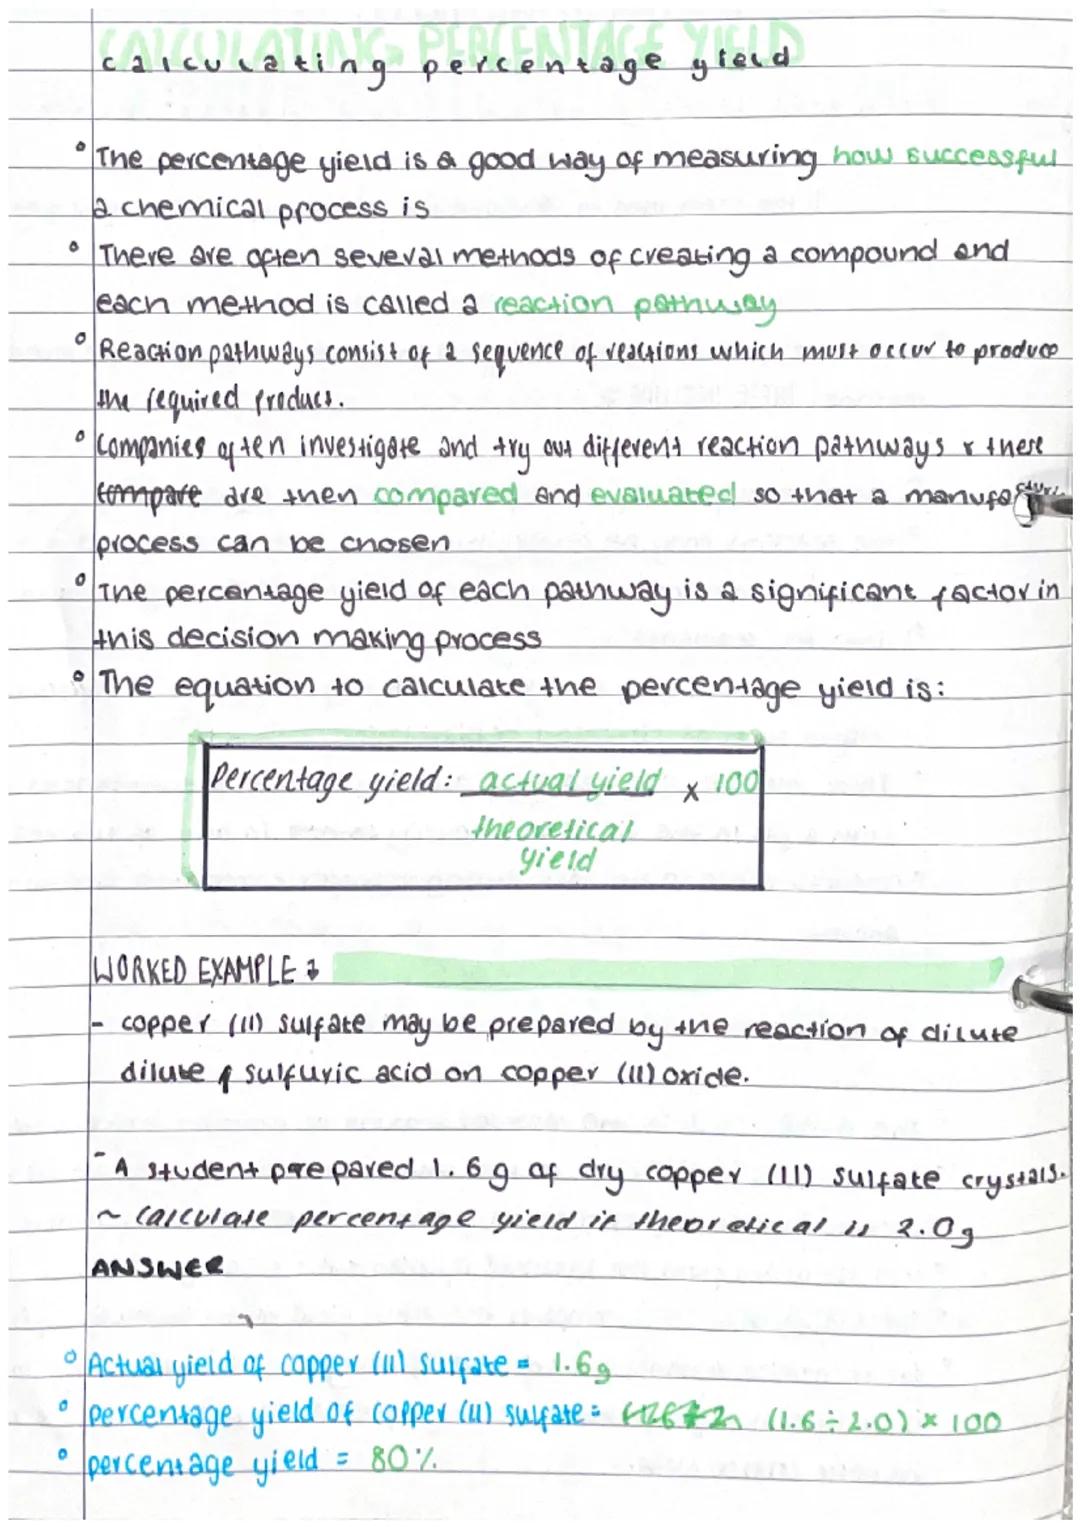 CALCULATING PERCENTAGE YIELD
calculating percentage yield
° The percentage yield is a good way of measuring how successful
a chemical process is
° There are often several methods of creating a compound and
each method is called a reaction pathway
° Reaction pathways consist of a sequence of reactions which must occur to produce
the required product.
° Companies often investigate and try out different reaction pathways & these
compare are then compared and evaluated so that a manufacturing
process can be chosen
° The percentage yield of each pathway is a significant factor in
this decision making process
° The equation to calculate the percentage yield is:
Percentage yield: actual yield x 100
theoretical
yield
WORKED EXAMPLE →
- copper (II) sulfate may be prepared by the reaction of dilute
dilute sulfuric acid on copper (II) oxide.
- A student prepared 1.6g of dry copper (II) sulfate crystals.
~ Calculate percentage yield if theoretical is 2.0g
ANSWER
° Actual yield of copper (II) sulfate = 1.6g
° percentage yield of copper (II) sulfate = (1.6 ÷ 2.0) x 100
° percentage yield = 80%